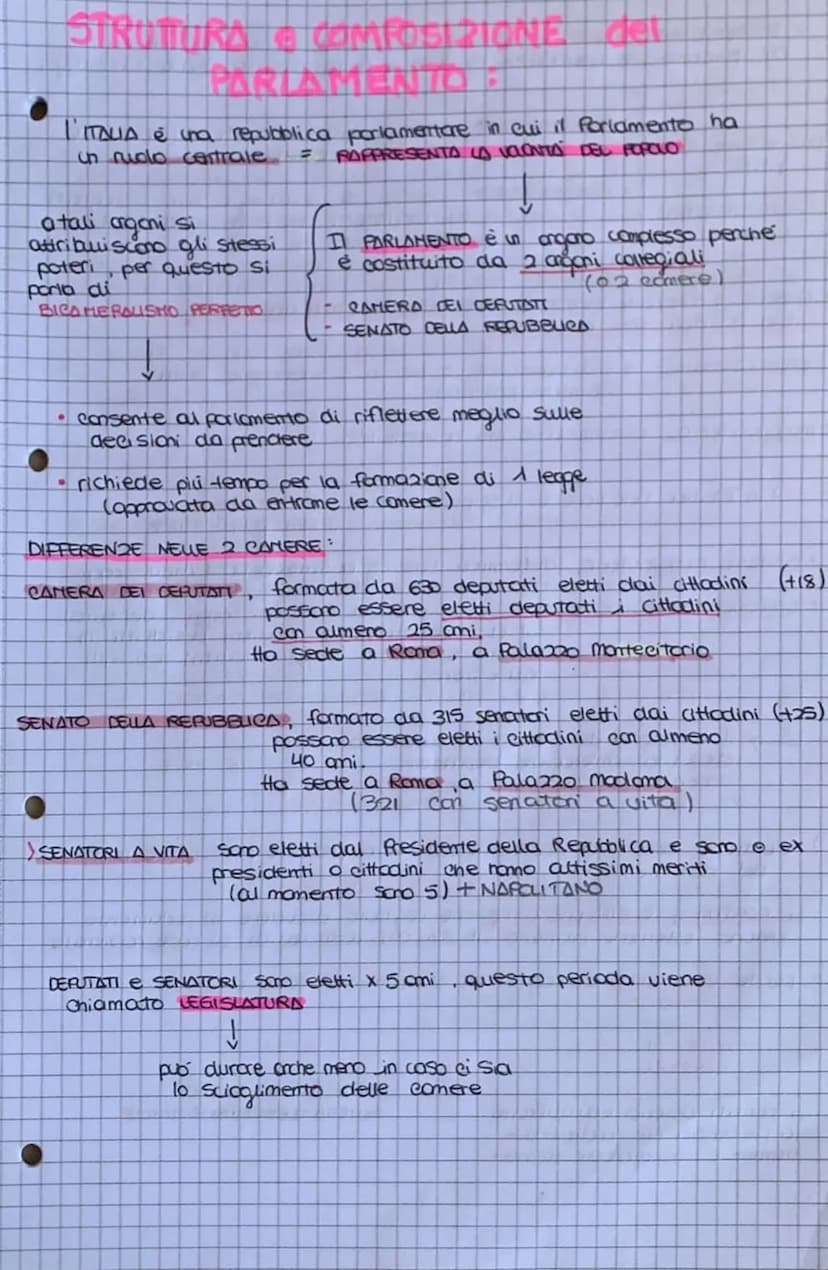 STRUTTURA e COMPOSIZIONE del
PARLAMENTO:
l'ITALIA è una repubblica parlamentare in cui il Parlamento ha
un ruolo centrale = RAPPRESENTA LA VOLONTÀ DEL POPOLO
a tali organi si
attribuiscono gli stessi
poteri, per questo si
parla di
BICAMERALISMO PERFETTO
Il PARLAMENTO è un organo complesso perché
è costituito da 2 organi collegiali
(o 2 camere)
- CAMERA DEI DEPUTATI
- SENATO DELLA REPUBBLICA
• consente al parlamento di riflettere meglio sulle
decisioni da prendere
• richiede più tempo per la formazione di 1 legge
(approvata da entrame le camere)
DIFFERENZE NELLE 2 CAMERE:
CAMERA DEI DEPUTATI, formata da 630 deputati eletti dai cittadini (+18)
possono essere eletti deputati i cittadini
con almeno 25 anni.
Ha sede a Roma, a Palazzo Montecitorio
SENATO DELLA REPUBBLICA, formato da 315 senatori eletti dai cittadini (+25)
possono essere eletti i cittadini con almeno
40 anni.
Ha sede a Roma, a Palazzo madama
(321 con senatori a vita)
) SENATORI A VITA sono eletti dal Presidente della Repubblica e sono o ex
presidenti o cittadini che hanno altissimi meriti
(al momento sono 5) + NAPOLITANO
DEPUTATI e SENATORI sono eletti x 5 anni, questo periodo viene
chiamato LEGISLATURA
può durare anche meno in caso ci sia
lo scioglimento delle camere